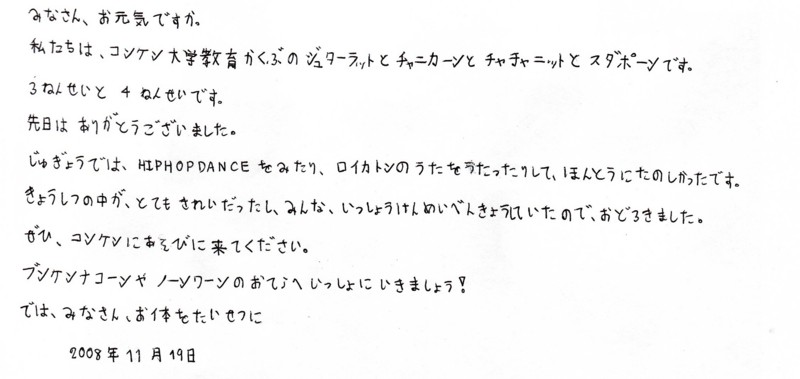 みなさん、お元気ですか。
私たちは、コンケン大学教育がくぶのジュターラットとチャニカーンとチャチャニットとスダポーンです。
3ねんせいと 4 ねんせいです。
先日は ありがとうございました。
じゅぎょうでは、HIPHOPDANCE をみたり、ロイカトンのうたをうたったりして、ほんとうにたのしかったです。
きょうしつの中が、とても きれいだったし、みんな、いっしょうけんめいべんきょうしていたので、おどろきました。
ぜひ、コンケンにあそびに来てください。
ブンケンナコーンや ノーンワーンのおてらへ いっしょに いきましょう!
では、みなさん、お体をたいせつに
2008年11月19日